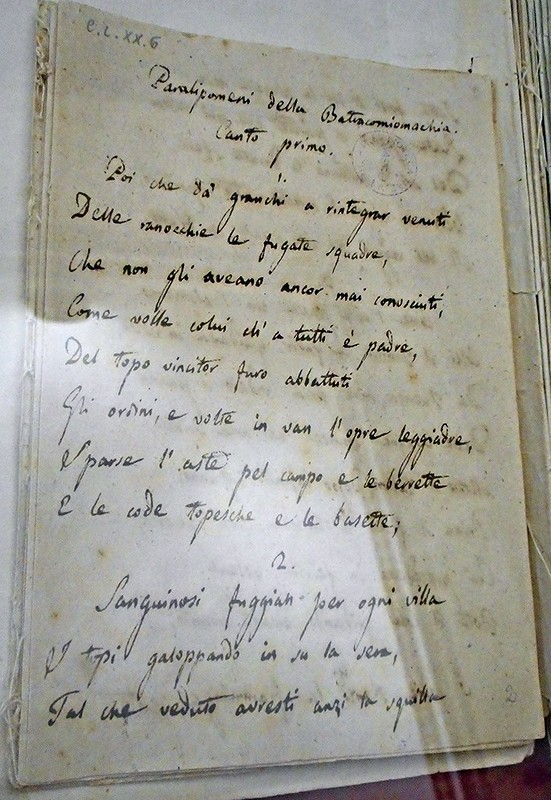 C.L.XX.6
Paralipomeni della Batracomiomachia.
Canto primo.
1.
Poi che da' granchi a rintegrar venuti
Delle ranocchie le fugate squadre,
Che non gli aveano ancor mai conosciuti,
Come volle colui ch' a tutti è padre,
Del topo vincitor furo abbattuti
Gli ordini, e volte in van l'opre leggiadre,
Sparse l' aste pel campo e le berrette
E le code topesche e le basette;
2.
Sanguinosi fuggian per ogni villa
I topi galoppando in su la sera,
Tal che veduto avresti anzi la squilla
2